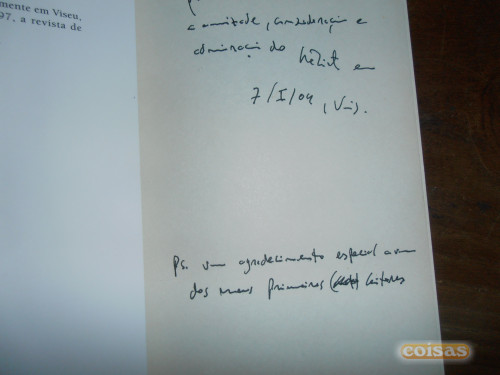 mente em Viseu,
97, a revista de
a amizade, consideração e
admiração do em
7/I/04 (Vis).
Ps. um agradecimento especial a um
dos meus primeiros leitores
coisas